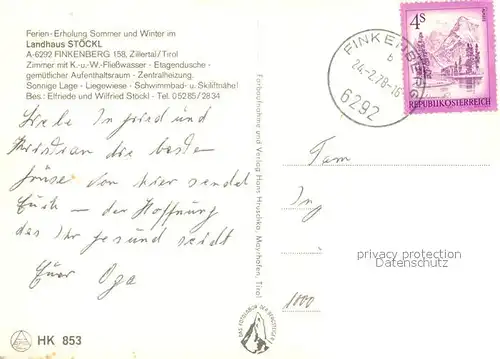 Ferien-Erholung Sommer und Winter im
Landhaus STÖCKL
A-6292 FINKENBERG 158, Zillertal/Tirol
Zimmer mit K.-u.-W.-Fließwasser - Etagendusche -
gemütlicher Aufenthaltsraum - Zentralheizung.
Sonnige Lage - Liegewiese - Schwimmbad- u. Skiliftnähe!
Bes.: Elfriede und Wilfried Stöckl - Tel. 05285/2834
Liebe Ingried und
Christian die besten
Grüse von hier sendet
Euch — der Hoffnung
das Ihr gesund seidt
Euer Opa
HK 853
Farbaufnahme und Verlag Hans Hruschka, Mayrhofen, Tirol
DAS FOTOHAUS DER BERGSTEIGER
FINKENBERG
b
24-2.78-16
6292
4S
REPUBLIK ÖSTERREICH
Fam
Ing
1000
privacy protection
Datenschutz